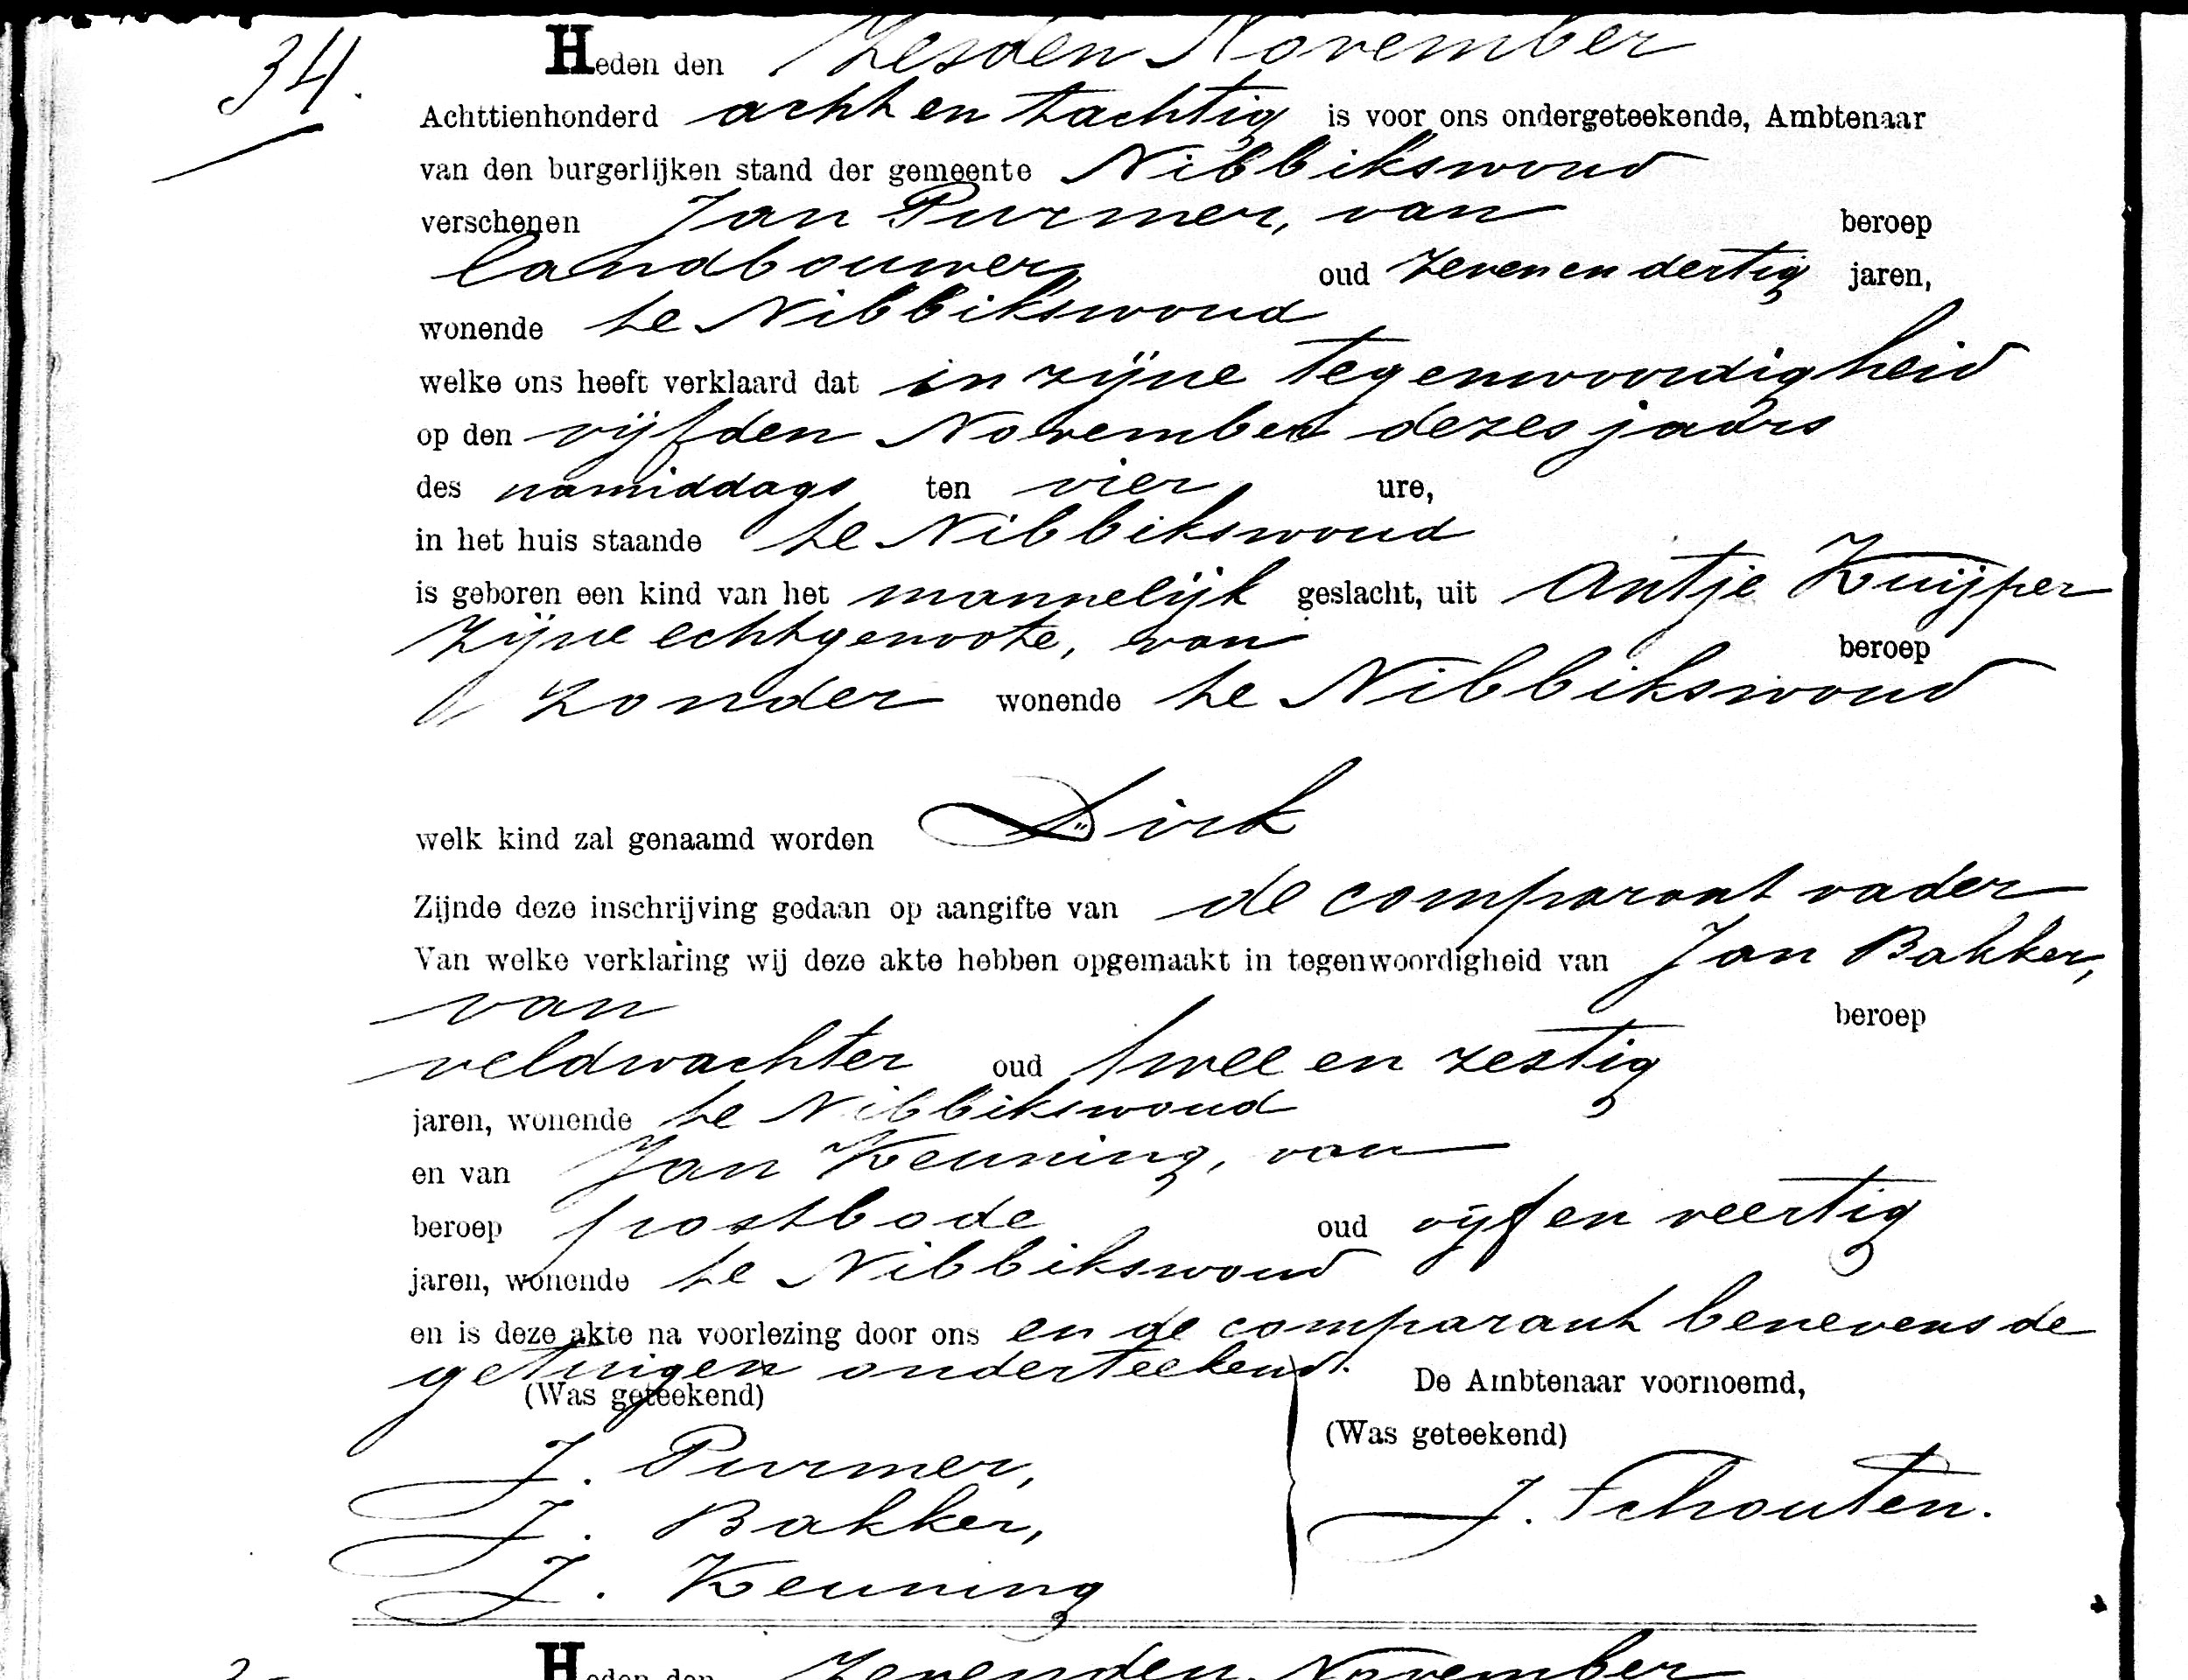 34.
Heden den Zesden November
Achttienhonderd acht en tachtig is voor ons ondergeteekende, Ambtenaar
van den burgerlijken stand der gemeente Nibbikswoud
verschenen Jan Purmer, van beroep
landbouwer, oud zeven en dertig jaren,
wonende te Nibbikswoud
welke ons heeft verklaard dat in zijne tegenwoordigheid
op den vijfden November dezes jaars
des namiddags ten vier ure,
in het huis staande te Nibbikswoud
is geboren een kind van het mannelijk geslacht, uit Antje Kuijper
zijne echtgenoote, van beroep
zonder wonende te Nibbikswoud
welk kind zal genaamd worden Dirk
Zijnde deze inschrijving gedaan op aangifte van de comparant vader
Van welke verklaring wij deze akte hebben opgemaakt in tegenwoordigheid van Jan Bakker,
van beroep
veldwachter oud twee en zestig
jaren, wonende te Nibbikswoud
en van Jan Keuning, van
beroep postbode oud vijf en veertig
jaren, wonende te Nibbikswoud
en is deze akte na voorlezing door ons en de comparant benevens de
getuigen onderteekend.
(Was geteekend)
De Ambtenaar voornoemd,
(Was geteekend)
J. Purmer,
J. Bakker,
J. Keuning
J. Schouten.
Heden den Zevenden November